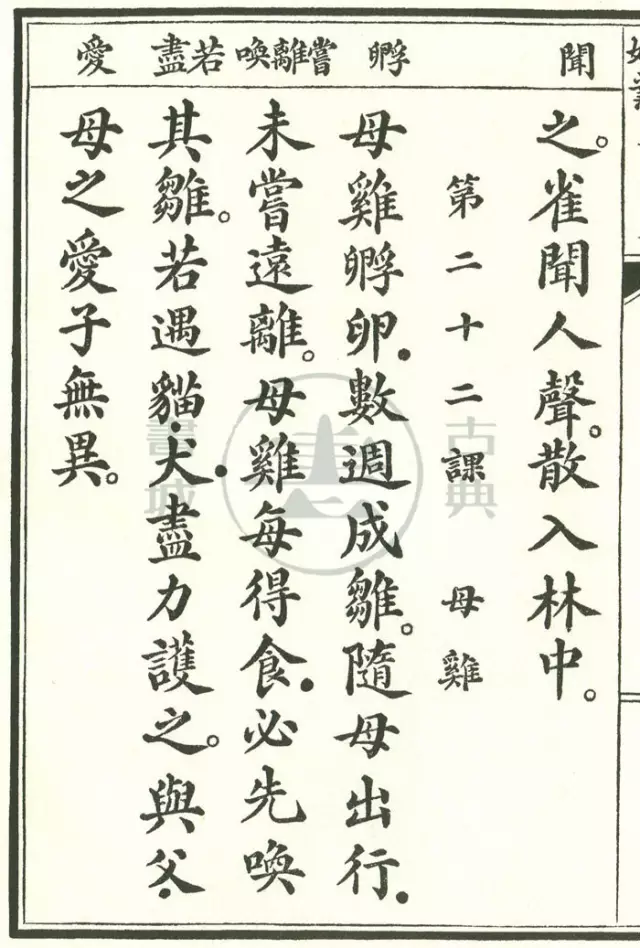 聞　孵　嘗離喚　若盡　愛
之。雀聞人聲。散入林中。
第二十二課　母雞
母雞孵卵．數週成雛。隨母出行．
未嘗遠離。母雞每得食．必先喚
其雛。若遇貓．犬．盡力護之。與父．
母之愛子無異。
古典
書城